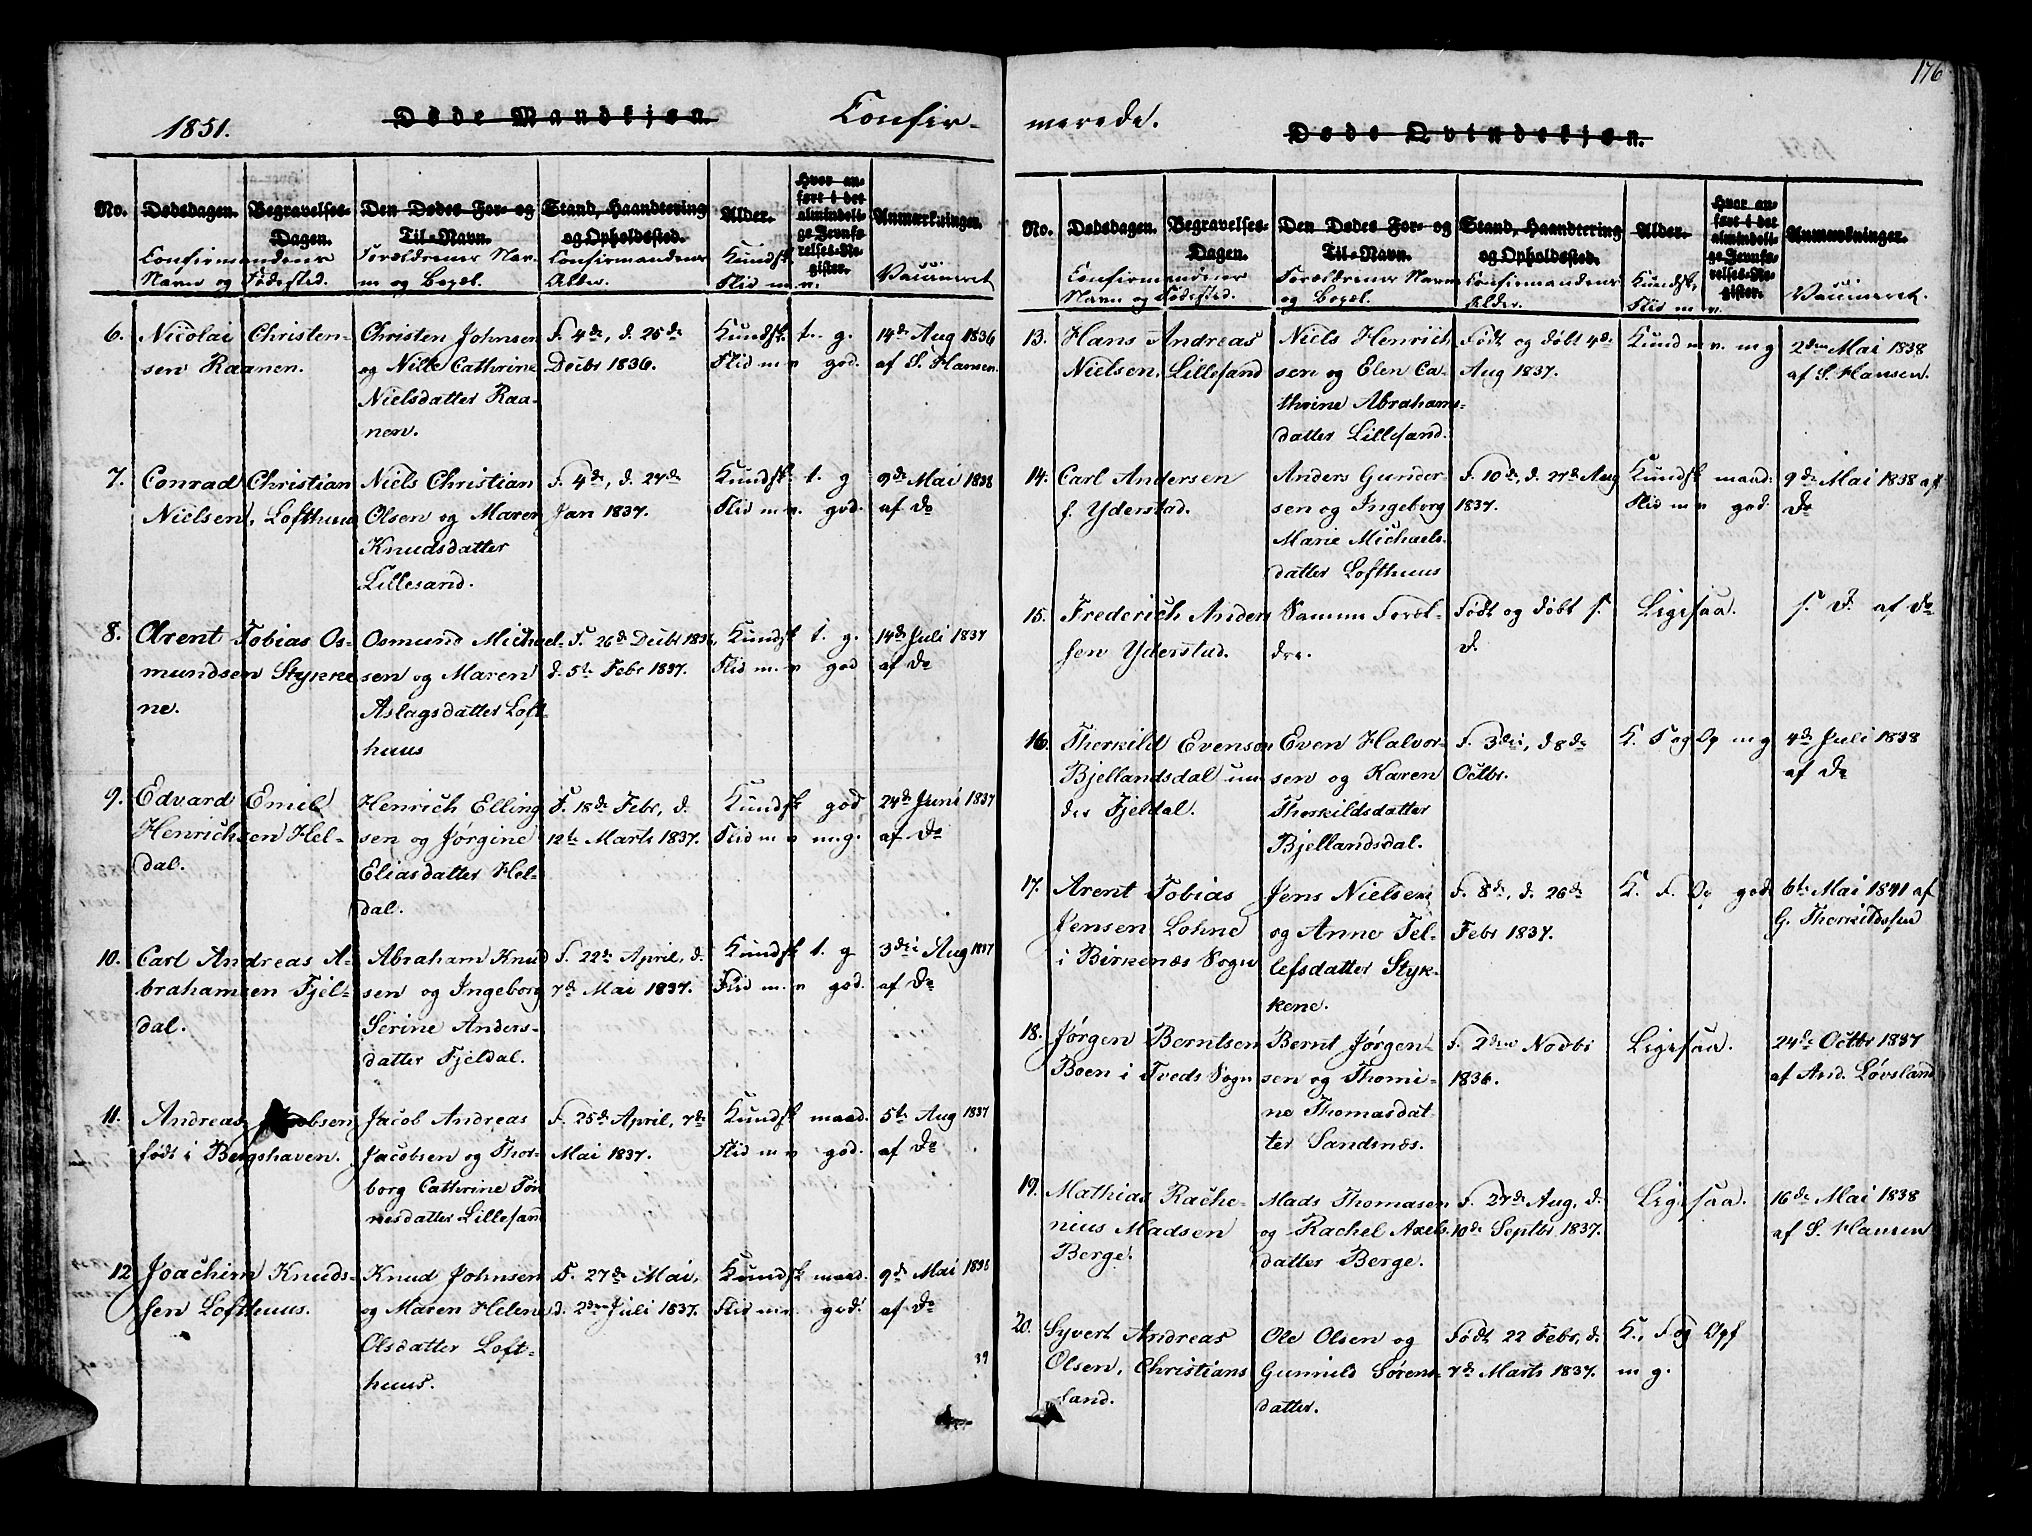 176
1851. Døde Mandkjøn. Confir-
No. Dødsdagen. Begravelses-Dagen. Den Dødes For- og Til-Navn. Stand, Haandtering og Opholdssted. Alder. Hvor anført i det almindelige Jevnførelses-Register. Anmærkninger.
Confirmandener Navn og Fødested. Forældrener Navn og Bopæl. Confirmandener Alder. Kundsk. Flid m. v. Vaccineret
6. Nicolai Christen- Christen Johnsen F. 4de, d. 25de Kundsk. t. g. 14de Aug 1836
sen Raanen. og Nille Cathrine Decbr 1836. Flid m. v. god. af S. Hansen.
Nielsdatter Raa-
nen.
7. Conrad Christian Niels Christian F. 4de, d. 24de Kundsk. t. g 9de Mai 1838
Nielsen, Lofthuus Olsen og Maren Jan 1837. Flid m. v. god. af Do
Knudsdatter
Lillesand.
8. Arent Tobias Os- Osmund Michael- F. 26de Decbr 1836, Kundsk t. g. 14de Juli 1837
mundsen Stykke sen og Maren d. 5te Febr 1837. Flid m. v god af Do
ne. Aslagsdatter Loft
huus
9. Edvard Emil Henrich Elling F. 18de Febr, d. Kundsk god 24de Juni 1837
Henrichsen Hel- sen og Jørgine 12te Marts 1837. Flid m. v m.g. af Do
dal. Eliasdatter Hel-
dal.
10. Carl Andreas A- Abraham Knud F. 22de April, d. Kundsk t. g 3die Aug 1837
brahamsen Fjel- sen og Ingeborg 7de Mai 1837. Flid m. v god. af Do
dal. Serine Anders-
datter Fjeldal.
11. Andreas Jacobsen Jacob Andreas F. 25de April, 7de Kundsk maad. 5te Aug 1837
født i Bergshaven. Jacobsen og Thor- Mai 1837. Flid m v god. af Do
borg Cathrine Tøn
nesdatter Lillesand
12 Joachim Knuds- Knud Johnsen F. 27de Mai, Kundsk maad. 9de Mai 1838
sen Lofthuus. og Maren Helene d. 2den Juli 1837. Flid m.v. god. af Do
Olsdatter Loft-
huus.
39
merede. Døde Qvindekjøn.
No. Dødsdagen. Begravelses-Dagen. Den Dødes For- og Til-Navn. Stand, Haandtering og Opholdssted. Alder. Hvor anført i det almindelige Jevnførelses-Register. Anmærkninger.
Confirmandener Navn og Fødested. Forældrener Navn og Bopæl. Confirmandener Alder. Kundsk, Flid m. v. Vaccineret.
13. Hans Andreas Niels Henrich Født og døbt 4de Kund m v. m g 2den Mai 1838
Nielsen. Lillesand sen og Elen Ca- Aug 1837. af S. Hansen.
thrine Abrahams-
datter Lillesand.
14. Carl Andersen Anders Gunder- F. 10de, d. 27de Aug Kundsk maad. 9de Mai 1838 af
f. Yderstad. sen og Ingeborg 1837. Flid m v god. Do
Marie Michaels-
datter Lofthuus
15. Frederich Ander Samme Foræl- Født og døbt s. Ligesaa. s. D. af Do
sen Yderstad. dre. D.
16. Thorkild Evensen Even Halvor- F. 3die, d 8de K. F og Op m g 4de Juli 1838
Bjellandsdal un sen og Karen Octbr. af Do
der Fjeldal. Thorkildsdatter
Bjellandsdal.
17. Arent Tobias Jens Nielsen F. 8de, d. 26de K. F. Op god 6te Mai 1841 af
Jensen Lohne og Anne Tel- Febr 1837. G. Thorkildssen
i Birkenæs Sogn lefsdatter Styk-
kene.
18. Jørgen Berntsen Bernt Jørgen- F. 2den Novbr Ligesaa. 24de Octbr 1837
Boen i Tveds Sogn sen og Thomi- 1836. af And. Løvsland
ne Thomasdat
ter Sandsnæs.
19. Mathias Rache- Mads Thomasen F. 27de Aug, d. Ligesaa. 16de Mai 1838
nius Madsen og Rachel Axels- 10de Septbr 1837. af S. Hansen
Berge. datter Berge.
20. Syvert Andreas Ole Olsen og Født 22 Febr, d. K., F og Opf
Olsen, Christians Gunnild Sørens- 7de Marts 1837. m g.
sand. datter.